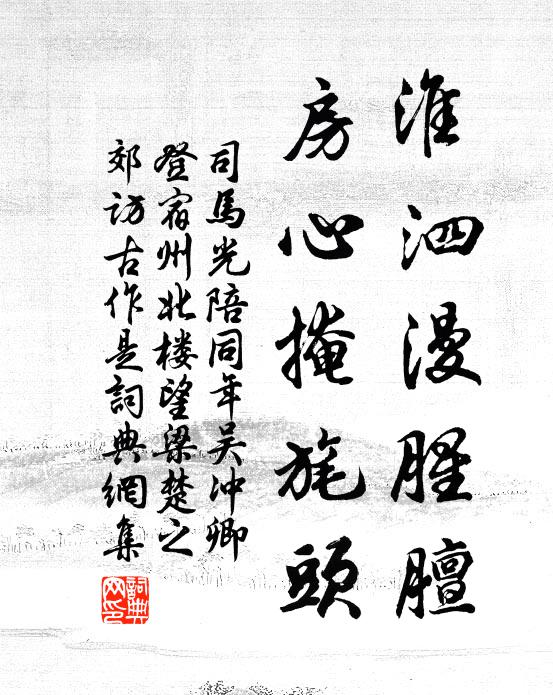 淮泗漫腥膻
房心掩旄頭
司馬光陪同年吴冲卿
登宿州北楼望梁楚之
郊访古作是詞典網集
詞典网印